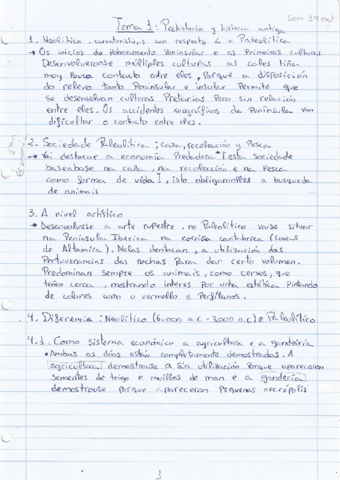 Sem 14 oct
Tema 1: Prehistoria y historia antiga
1. Neolítica, características con respecto a Paleolítica
→ Os inicios do Poboamento Peninsular e as Primeiras culturas
Desenvolvéronse múltiples culturas as cales tiña
moy pouco contacto entre eles, Porque a disposición
do relevo tanto Peninsular e insular Permite que
se desenvolvan culturas Pretarias Pero sin relación
entre eles. Os accidentes xeográficos da Península van
dificultar o contacto entre eles.
2. Sociedade Paleolítica: caza, recolección y Pesca
→ Vai destacar a economía Predadora "esta sociedade
basenbase na caza, na recolección e na Pesca
como forma de vida", isto obrigaranlles a busqueda
de animais
3. A nivel artístico
→ desenvólvese a arte rupestre, no Paleolítico vaise situar
na Península Ibérica na cornisa cantábrica (covas
de Altamira). Nelas destacan, a utilización das
Protuverancias das rochas Para dar certo volumen.
Predominan sempre os animais, como cervos, que
teñen cerca, mostrando interes por unha estética Pintando
de colores como o vermello e Perfilalos.
4. Diferencia: Neolítico (6.000 a.C - 3000 a.C) e Paleolítico
4.1. Como sistema económico a agricultura e a gandeiria
• Ambas as dúas están completamente demostradas. A
agricultura demostrouse a súa utilización Porque apareceron
sementes de trigo e muíños de man e a gandería
demostrouse porque apareceron Pequenas necrópolis